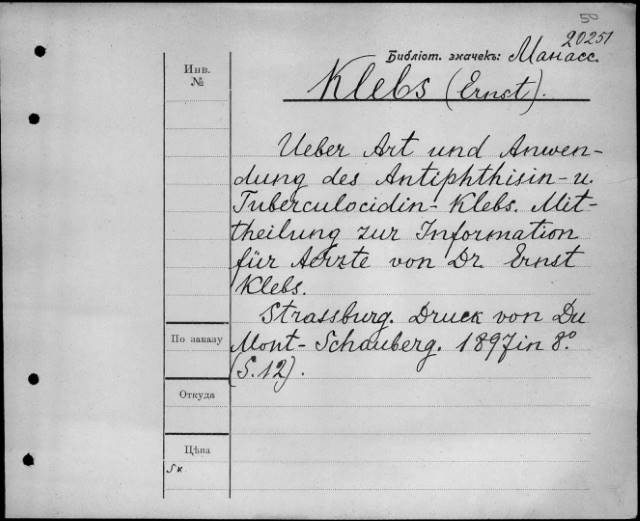 50
20251
Инв.
№
Библіот. значекъ: Манасс.
Klebs (Ernst).
Ueber Art und Anwen-
dung des Antiphthisin- u.
Tuberculocidin- Klebs. Mit-
theilung zur Information
für Aerzte von Dr. Ernst
Klebs.
Strassburg. Druck von Du
Mont- Schauberg. 1897 in 8º
(S. 12).
По заказу
Откуда
Цѣна